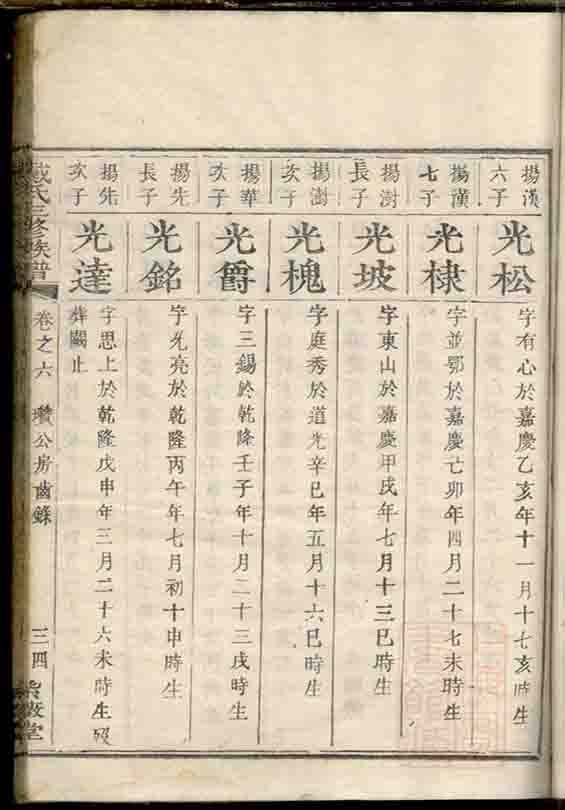 揚漢六子
光松
字有心於嘉慶乙亥年十一月十七亥時生
揚漢七子
光棣
字並鄂於嘉慶亡卯年四月二十七未時生
揚澍長子
光坡
字東山於嘉慶甲戌年七月十三巳時生
揚澍次子
光槐
字庭秀於道光辛巳年五月十六巳時生
揚華次子
光爵
字三錫於乾隆壬子年十月二十三戌時生
揚先長子
光銘
字光亮於乾隆丙午年七月初十申時生
揚先次子
光達
字思上於乾隆戊申年三月二十六未時生歿
葬闕止
戴氏三修族譜
卷之六
瓚公房齒錄
三四
紫薇堂